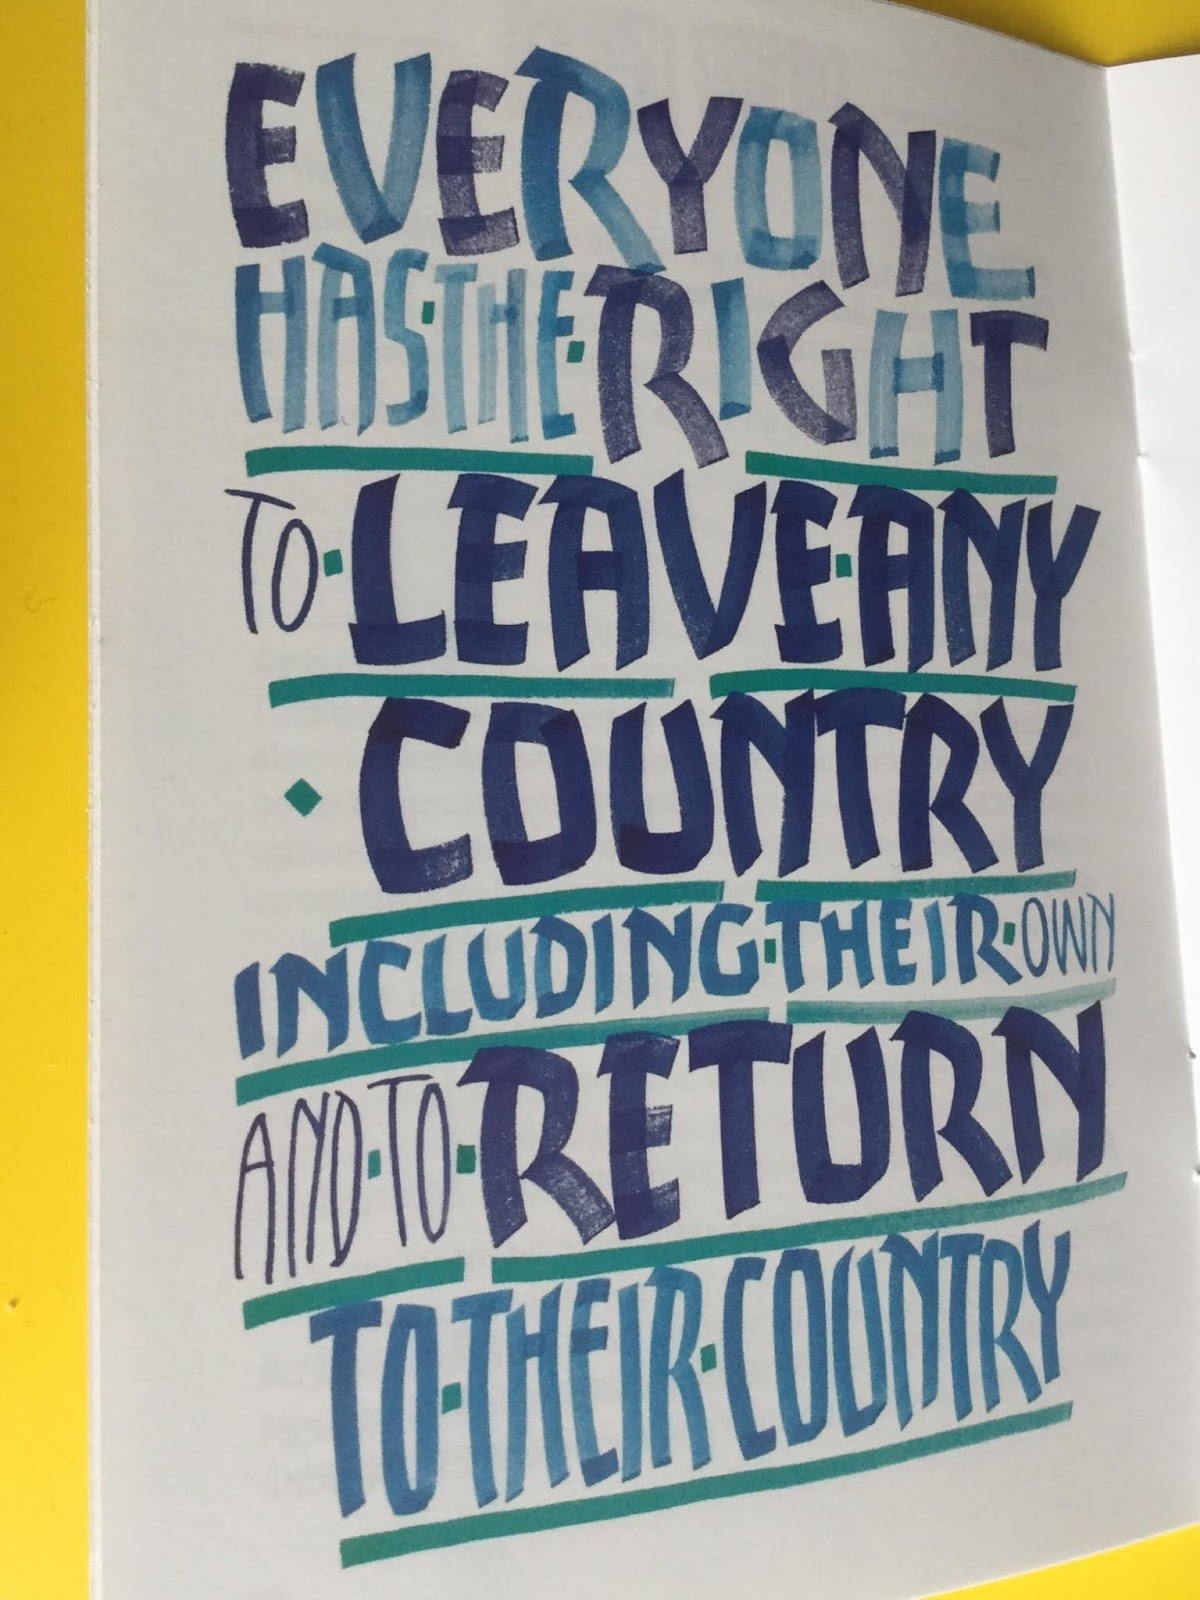 EVERYONE
HAS·THE·RIGHT
TO·LEAVE·ANY
·COUNTRY
INCLUDING·THEIR·OWN
AND·TO·RETURN
TO·THEIR·COUNTRY